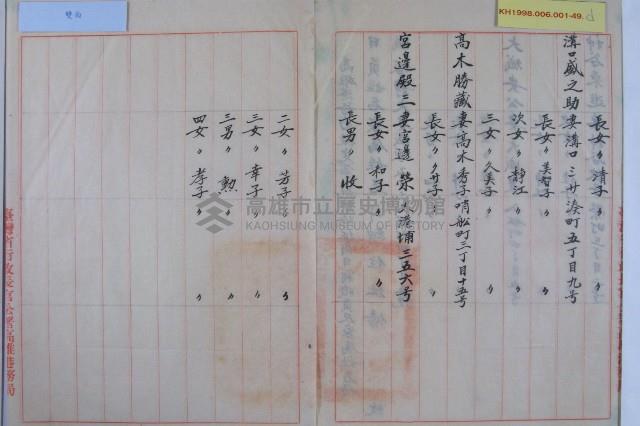 KH1998.006.001-49. b
雙面
長女〃清子〃 〃
溝口盛之助妻溝口三サ湊町五丁目九号
長女〃美智子〃 〃
次女〃靜江〃 〃
三女〃久美子〃 〃
高木勝藏妻高木秀子哨船町三丁目十五号
長女〃 〃 〃
宮邊殿三妻宮邊榮大港埔三五六号
長女〃和子〃 〃
長男〃 收
二女〃芳子〃 〃
三女〃幸子〃 〃
三男〃勲〃 〃
四女〃孝子〃 〃
臺灣省行政長官公署高雄港務局
高雄市立歷史博物館
KAOHSIUNG MUSEUM OF HISTORY